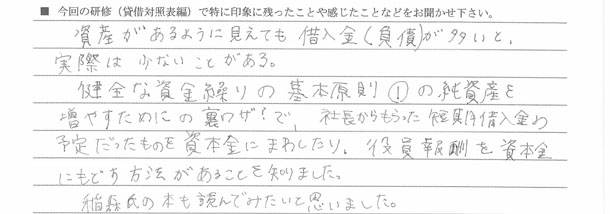 ■ 今回の研修（貸借対照表編）で特に印象に残ったことや感じたことなどをお聞かせ下さい。
資産があるように見えても借入金(負債)が多いと、
実際は少ないことがある。
健全な資金繰りの基本原則①の純資産を
増やすためにの裏ワザ!で、社長からもらった短期借入金の
予定だったものを資本金にまわしたり、役員報酬を資本金
にもどす方法があることを知りました。
稲森氏の本も読んでみたいと思いました。